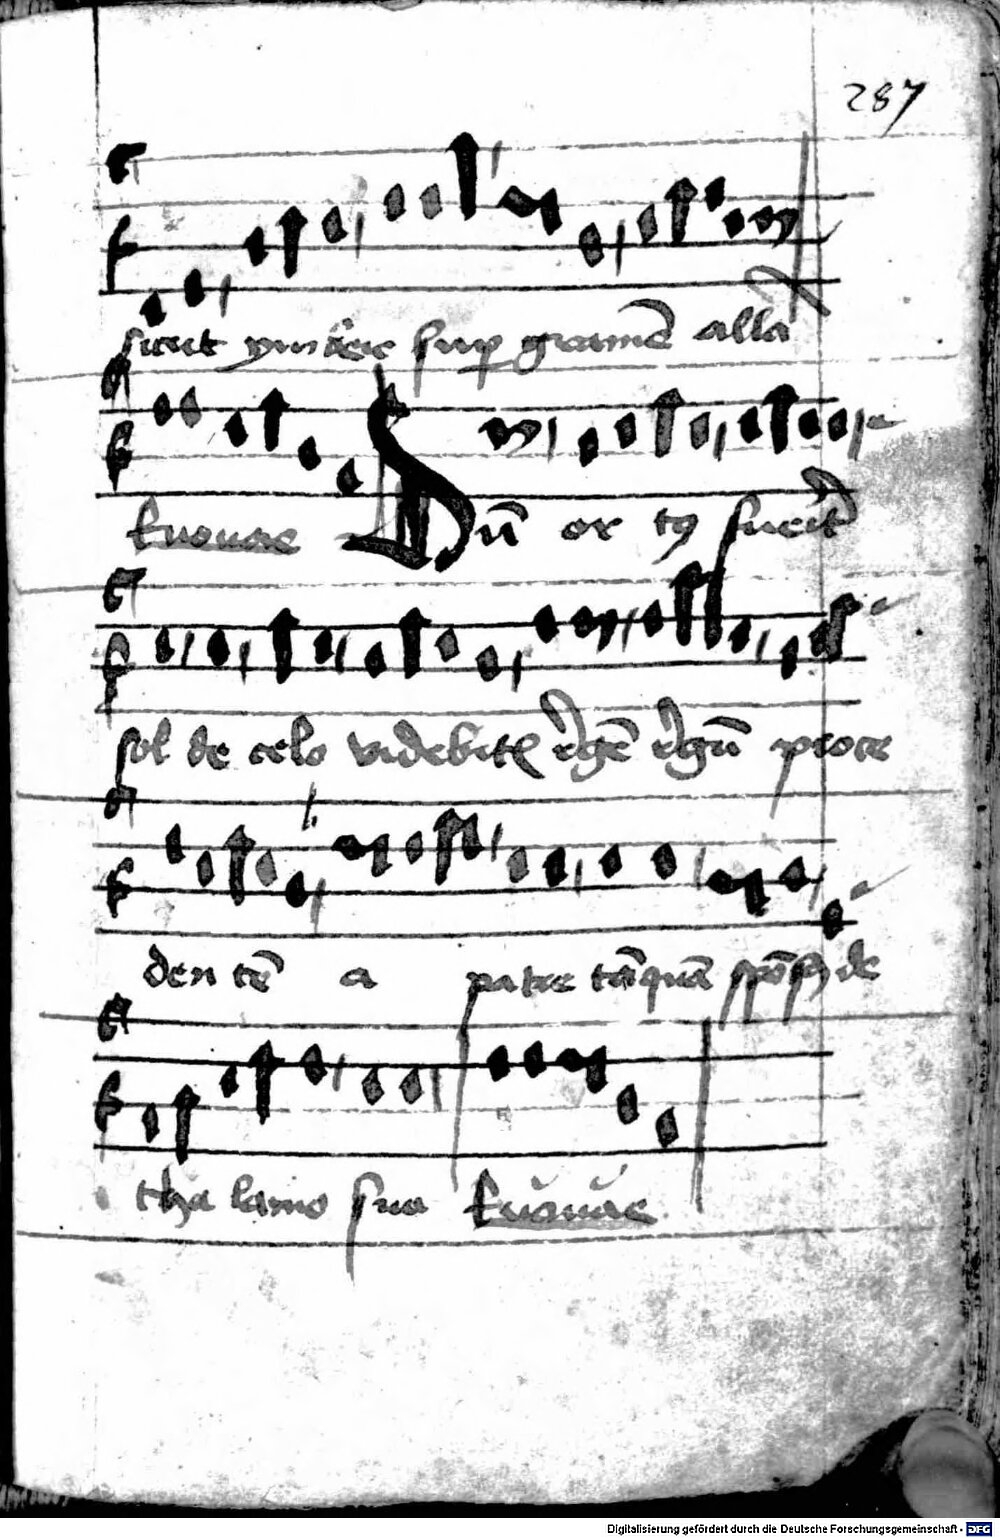 287
sicut ymber sup gramē alla
Euouae Dū or tꝰ fuerit
sol de celo videbitꝭ regē regū proce
den tē a patre tāquā spōsꝰ de
tha lamo suo Euouae
Digitalisierung gefördert durch die Deutsche Forschungsgemeinschaft - DFG